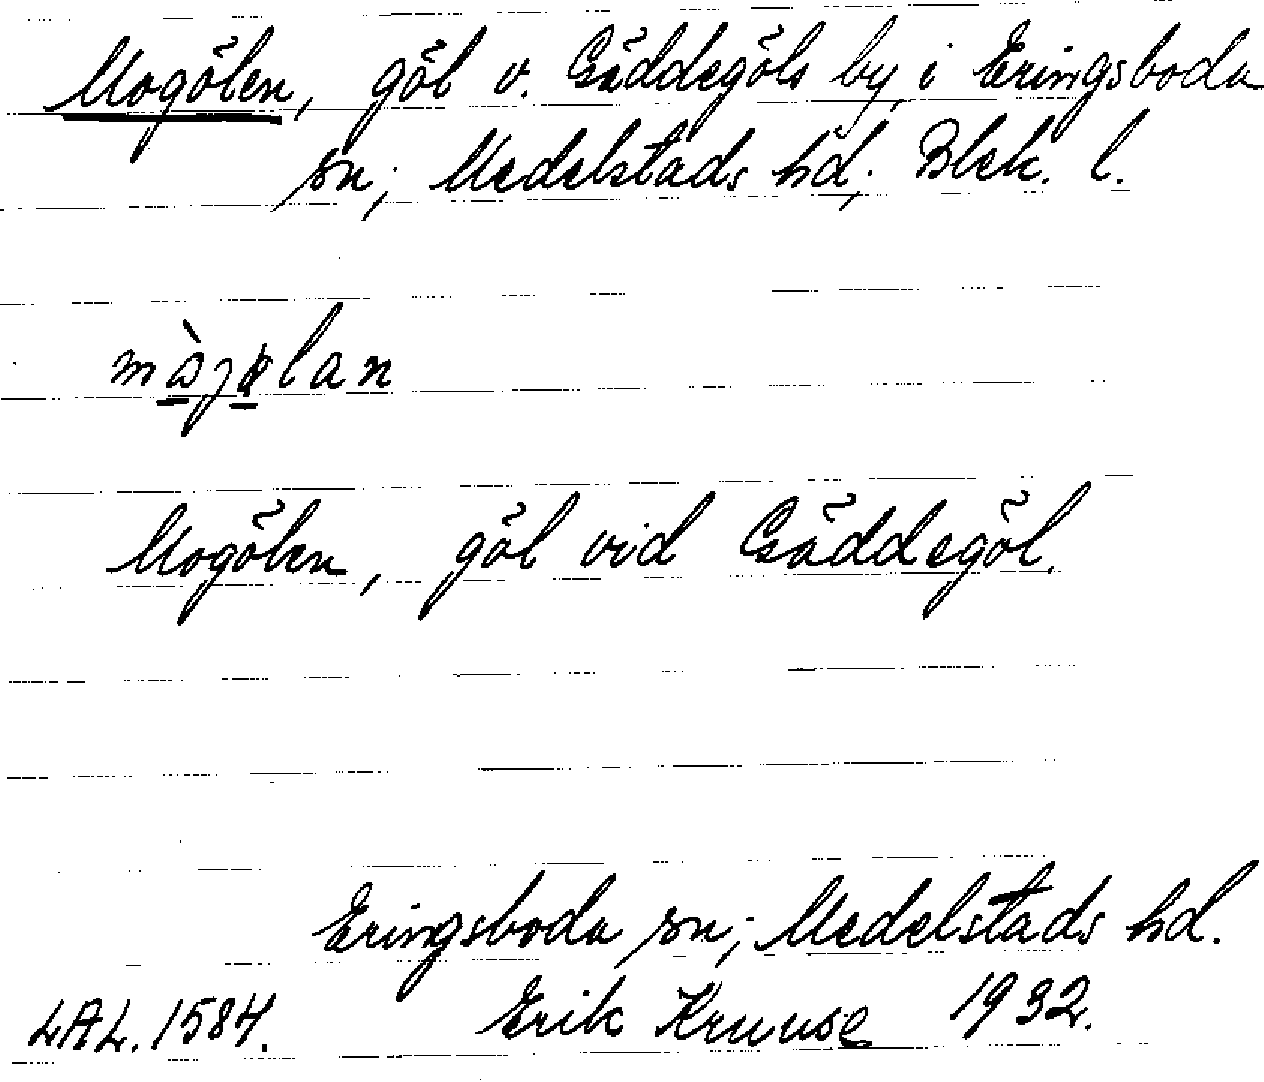 Mogölen, göl v. Gäddegöls by, i Eringsboda
sn; Medelstads hd; Blek. l.
Mogölen, göl vid Gäddegöl.
Eringsboda sn; Medelstads hd.
LAL. 1584. Erik Kruuse 1932.